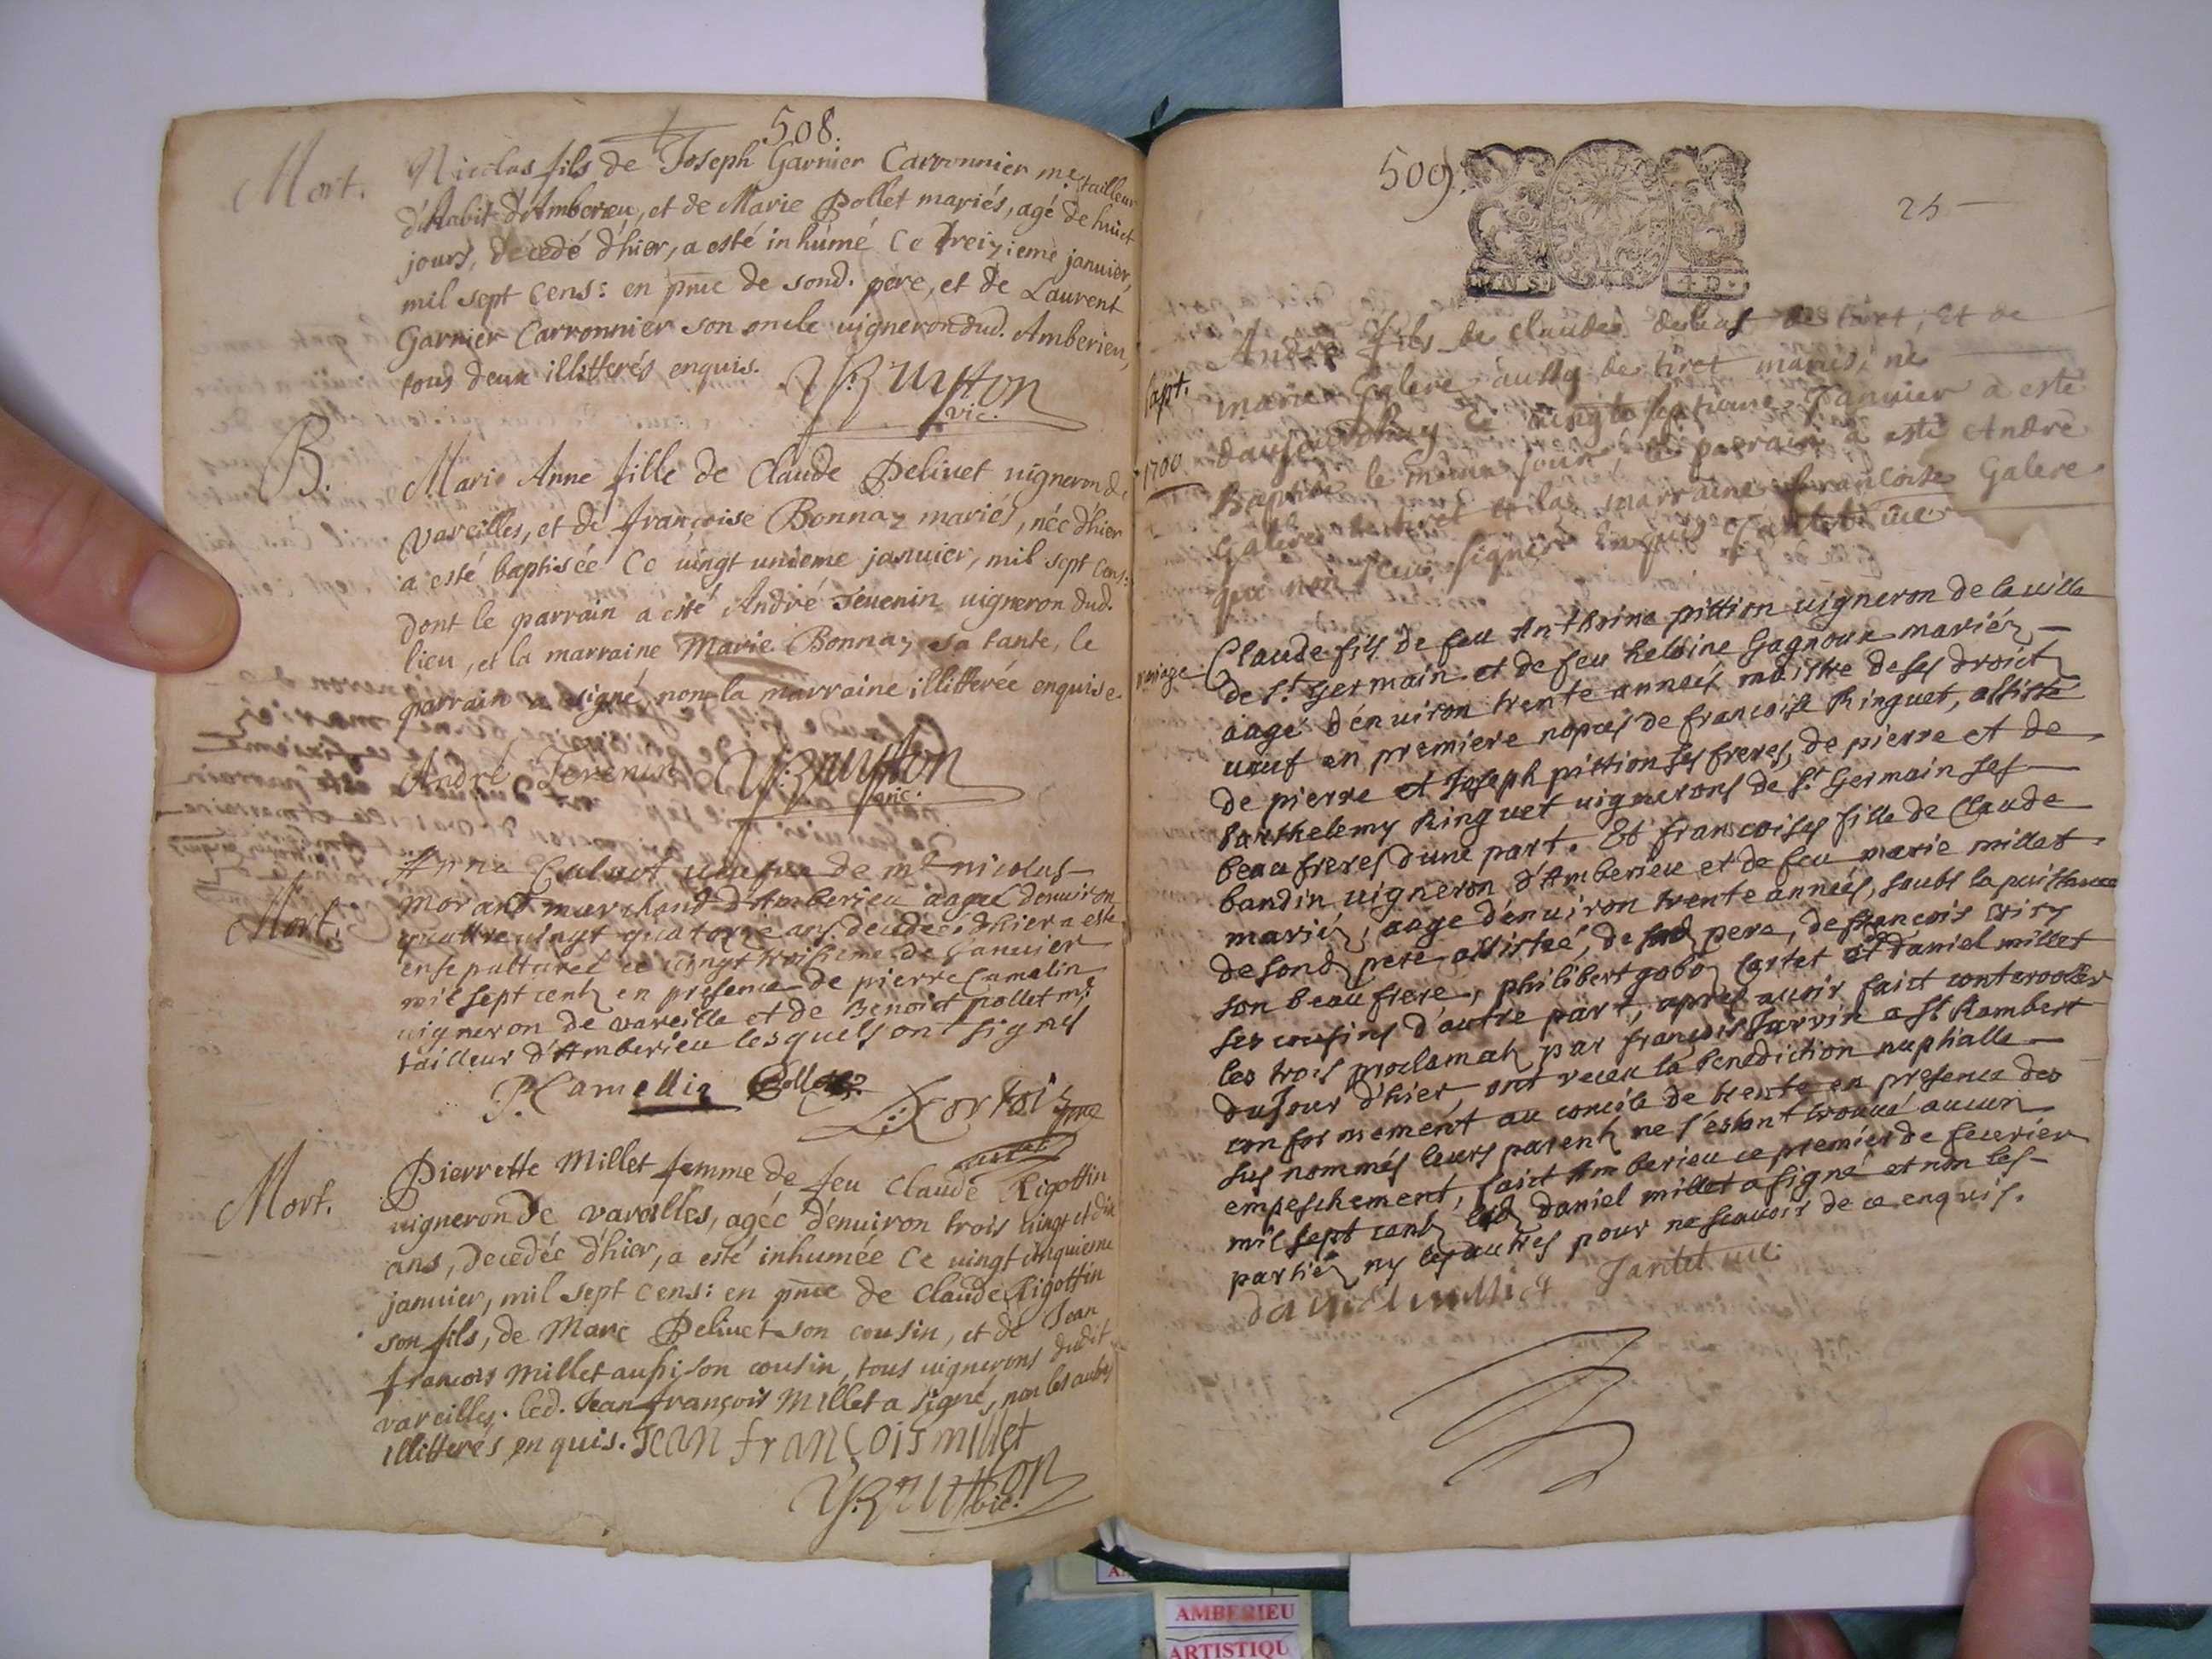 508.
Mort.
Nicolas fils de Joseph Garnier Carronnier me. tailleur
d'habit d'Amberieu, et de Marie Pollet mariés, agé de huict
jours, decedé d'hier, a esté inhumé Ce treizieme janvier,
mil sept Cens: en pnce de sond. pere, et de Laurent
Garnier Carronnier son oncle vigneron dud. Amberieu,
tous deux illitterés enquis.
vic.
B.
Marie Anne fille de Claude Pelivet vigneron de
vareilles, et de françoise Bonnaz mariés, née d'hier
a esté baptisée Ce vingt unieme janvier, mil sept Cens:
dont le parrain a esté André Tevenin vigneron dud.
lieu, et la marraine Marie Bonnaz sa tante, le
parrain a signé, non la marraine illitterée enquise.
André Tevenin
Mort.
Anne vefve de me nicolas
morand marchand d'Amberieu aagée denviron
quattre vingt quatorze ans decedée d'hier a esté
ensepulturée ce vingt troisieme de Janvier
mil sept centz en presence de pierre Camelin
vigneron de vareille et de Benoict pollet me
tailleur d'Amberieu lesquels ont signés
P. Camellin Pollet
Mort.
Pierrette Millet femme de feu Claude Rigottin
vigneron de vareilles, agée d'environ trois vingt et dix
ans, decedée d'hier, a esté inhumée Ce vingt cinquieme
janvier, mil sept Cens: en pnce de Claude Rigottin
son fils, de Marc Pelivet son cousin, et de Jean
francois Millet aussi son cousin, tous vignerons dudit
vareilles. led. Jean françois Millet a signé, non les autres
illitterés enquis. Jean françois millet
vic.
509.
25
4.D.
Bapt.
1700
André fils de claude de tiret, et de
marie Galere aussy de tiret mariés, né
ce vingt septieme Janvier a esté
Baptisé le meme jour, le parrain a esté André
Galere de tiret et la marraine francoise Galere
qui n'ont sceu signer enquis Tantet vic
mariage
Claude fils de feu Anthoine pittion vigneron de la ville
de St Germain et de feu heleine Gagnoux mariéz
aagé d'environ trente années maistre de ses droictz
veuf en premiere nopces de francoise Ringuet, assisté
de pierre et Joseph pittion ses freres, de pierre et de
barthelemy Ringuet vignerons de St Germain ses
beaufreres d'une part. Et francoise fille de Claude
bandin vigneron d'Amberieu et de feu marie millet
mariéz, aagé d'environ trente années, soubs la puissance
de sond pere assistée, de sond pere, de francois
son beau frere, philibert gaboz Castet et daniel millet
ses cousins d'autre part, apres avoir faict controoller
les trois proclamatz par francois Jarvin a St Rambert
du Jour d'hier, ont receu la benediction nuphialle
conformement au concile de trente en presence des
sus nommés leurs parentz ne s'estant trouvé aucun
empeschement, faict Amberieu ce premier de fevrier
mil sept centz led daniel millet a signé et non les
partiéz ny les autres pour ne scavoir de ce enquis.
daniel millet Tantet vic
AMBERIEU
ARTISTIQU